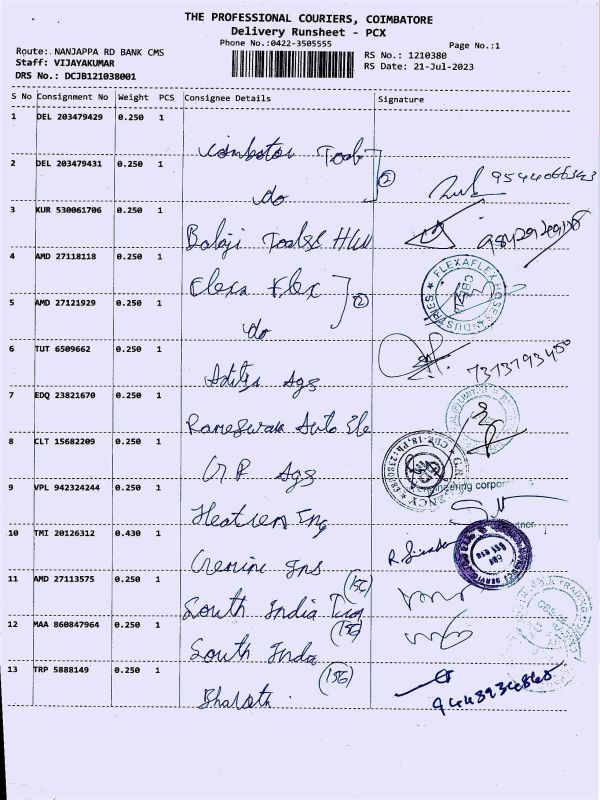 THE PROFESSIONAL COURIERS, COIMBATORE
Delivery Runsheet - PCX
Phone No.:0422-3505555
Page No.:1
Route: NANJAPPA RD BANK CMS
RS No.: 1210380
Staff: VIJAYAKUMAR
RS Date: 21-Jul-2023
DRS No.: DCJB121038001
S No Consignment No Weight PCS Consignee Details Signature
1 DEL 203479429 0.250 1
Tools
2 DEL 203479431 0.250 1
do
3 KUR 530061706 0.250 1
Balaji
4 AMD 27118118 0.250 1
Flexa Flex
FLEXAFLEX HOSE INDUSTRIES
5 AMD 27121929 0.250 1
do
6 TUT 6509662 0.250 1
Ags
7 EDQ 23821670 0.250 1
Rameswara Auto Ele
8 CLT 15682209 0.250 1
G.R Ags
9 VPL 942324244 0.250 1
Eng
10 TMI 20126312 0.430 1
Gemini Ins
11 AMD 27113575 0.250 1
South India
12 MAA 860847964 0.250 1
South India
13 TRP 5888149 0.250 1
Bharath